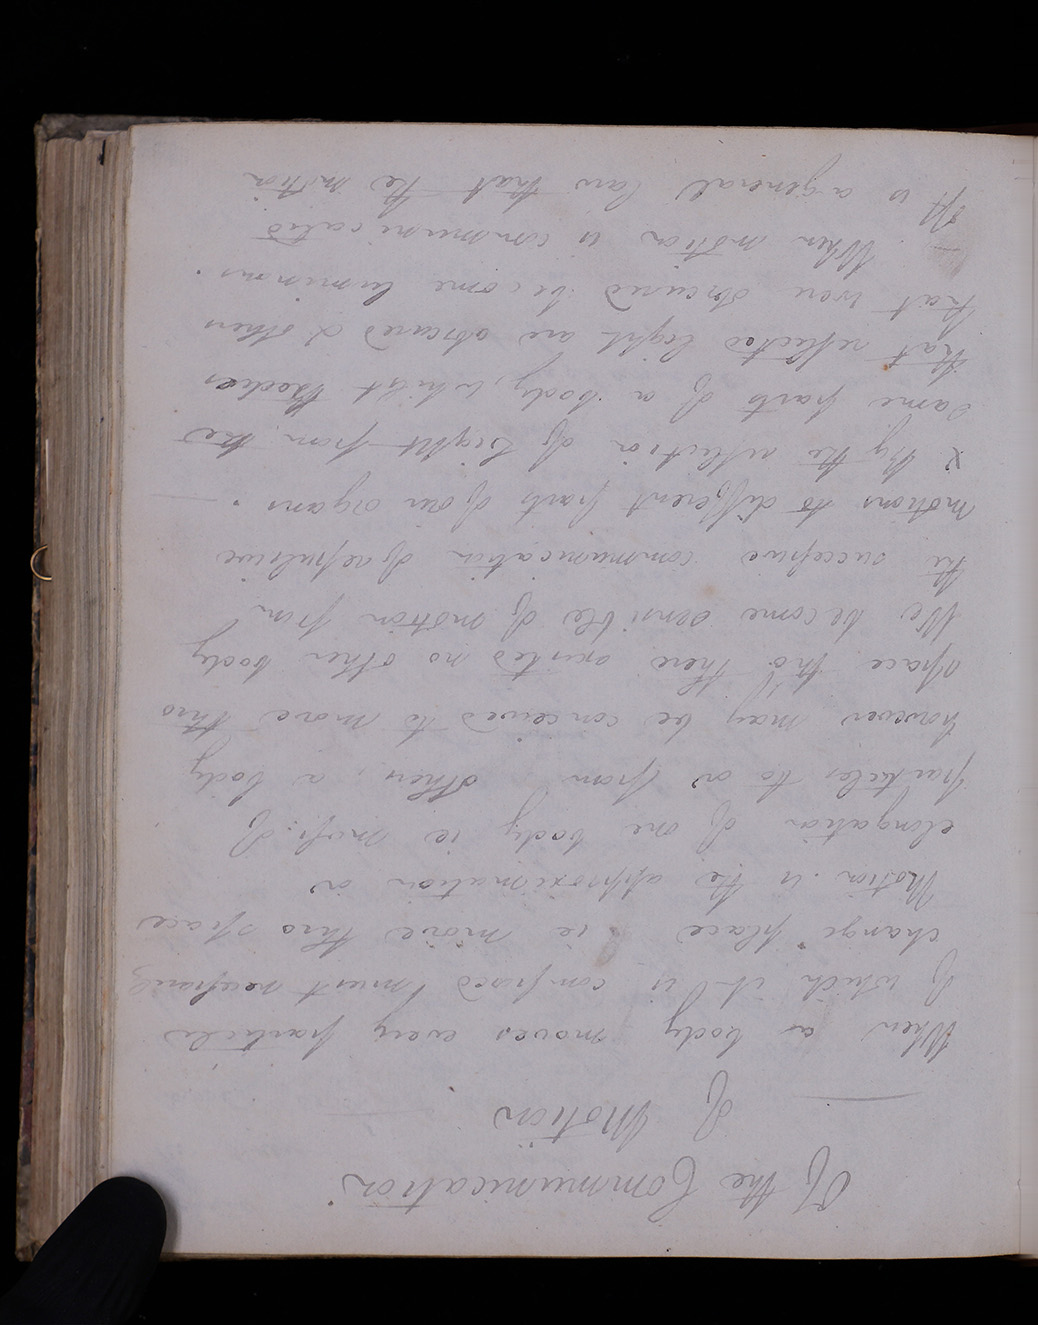 Of the Communication
of Motion
When a body moves every particle
of which it is composed must necessarily
change place ie move thro space
Motion is the approximation or
elongation of one body ie mass of
particles to or from others, a body
however may be conceived to move thro
space tho' there existed no other body
We become sensible of motion from
the successive communication of repulsive
motions to different parts of our organs.
& By the reflection of light from the
same parts of a body, whilst bodies
that reflected light are obscured & others
that were obscured become luminous.
When motion is communicated
It is a general law that the motion